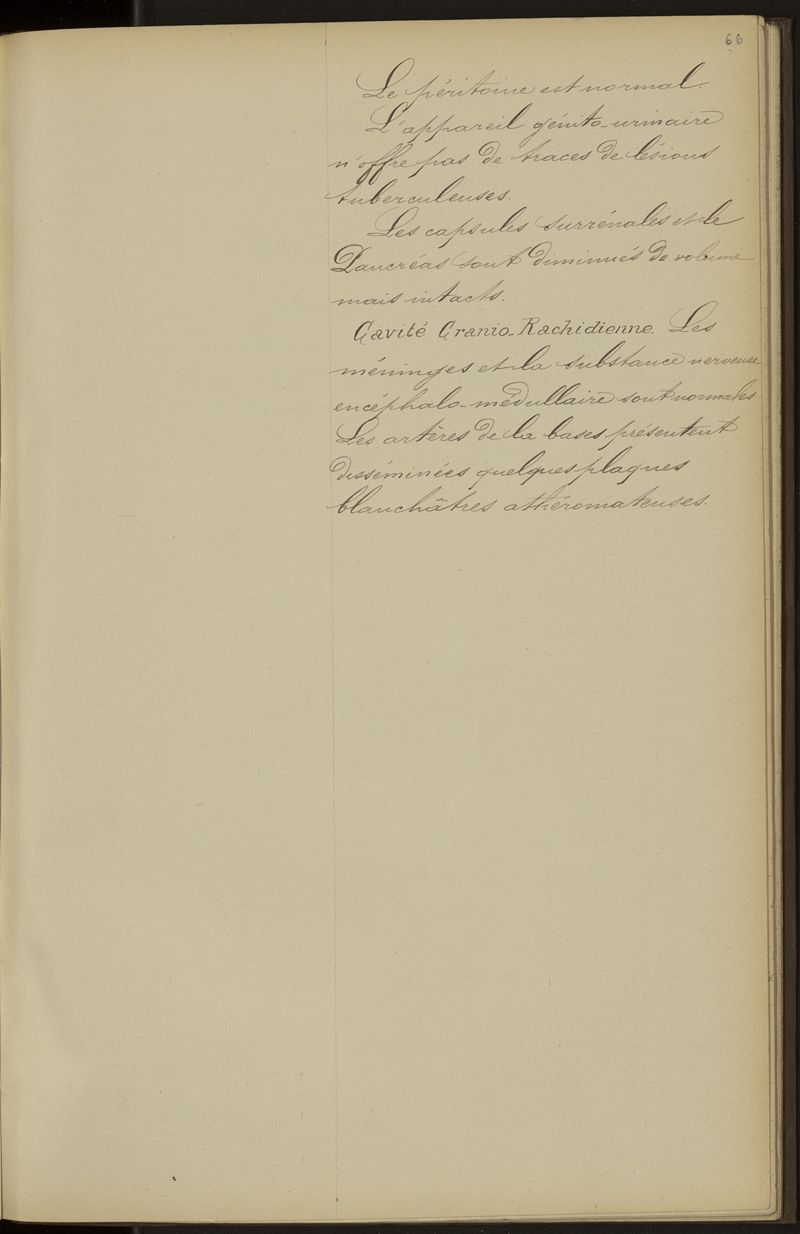 66
Le péritoine est normal.
L'appareil génito-urinaire
n'offre pas de traces de lésions
tuberculeuses.
Les capsules surrénales et le
Pancréas sont diminués de volume
mais intacts.
Cavité Cranio-Rachidienne. Les
méninges et la substance nerveuse
encéphalo-médullaire sont normales
Les artères de la bases présentent
disséminées quelques plaques
blanchâtres athéromateuses.